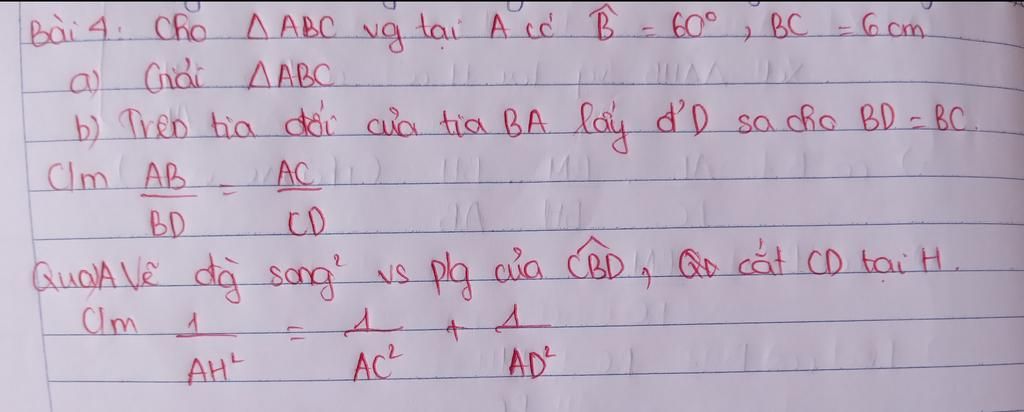 Bài 4: Cho △ABC vg tại A có B̂ = 60°, BC = 6 cm
a) Giải △ABC
b) Trên tia đối của tia BA lấy đ' D sa cho BD = BC.
C/m AB/BD = AC/CD
Qua A Vẽ đg̀ song² vs p/g của CBD̂, cắt CD tại H.
C/m 1/AH² = 1/AC² + 1/AD²